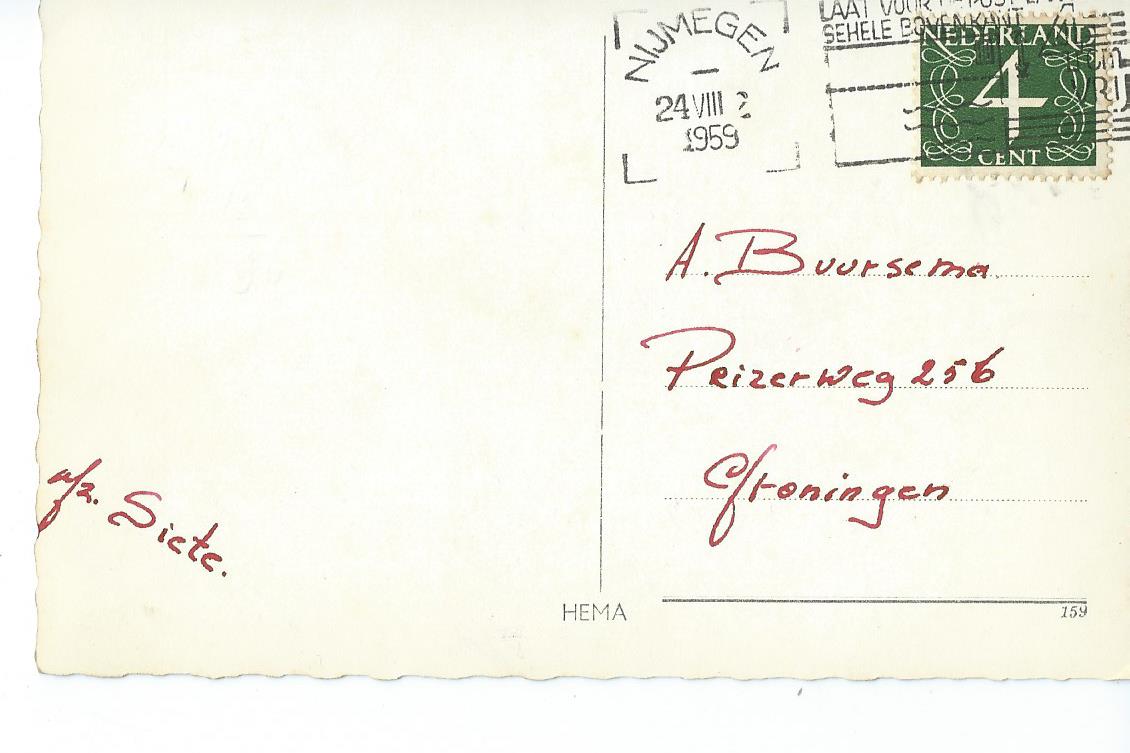 NIJMEGEN
24 VIII
1959
LAAT VOOR
BOVENKANT
NEDERLAND
4
CENT
VRIJ
A. Buursema
Peizerweg 256
Groningen
a/z. Siete.
HEMA
159